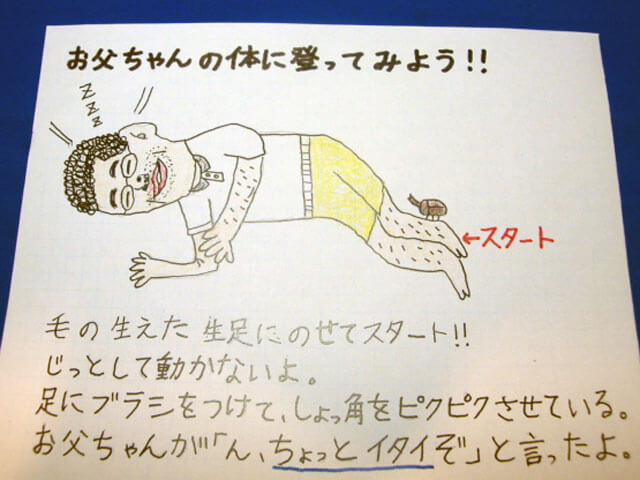 お父ちゃんの体に登ってみよう!!
ZZZz
←スタート
毛の生えた生足にのせてスタート!!
じっとして動かないよ。
足にブラシをつけて、しょっ角をピクピクさせている。
お父ちゃんが「ん、ちょっとイタイぞ」と言ったよ。